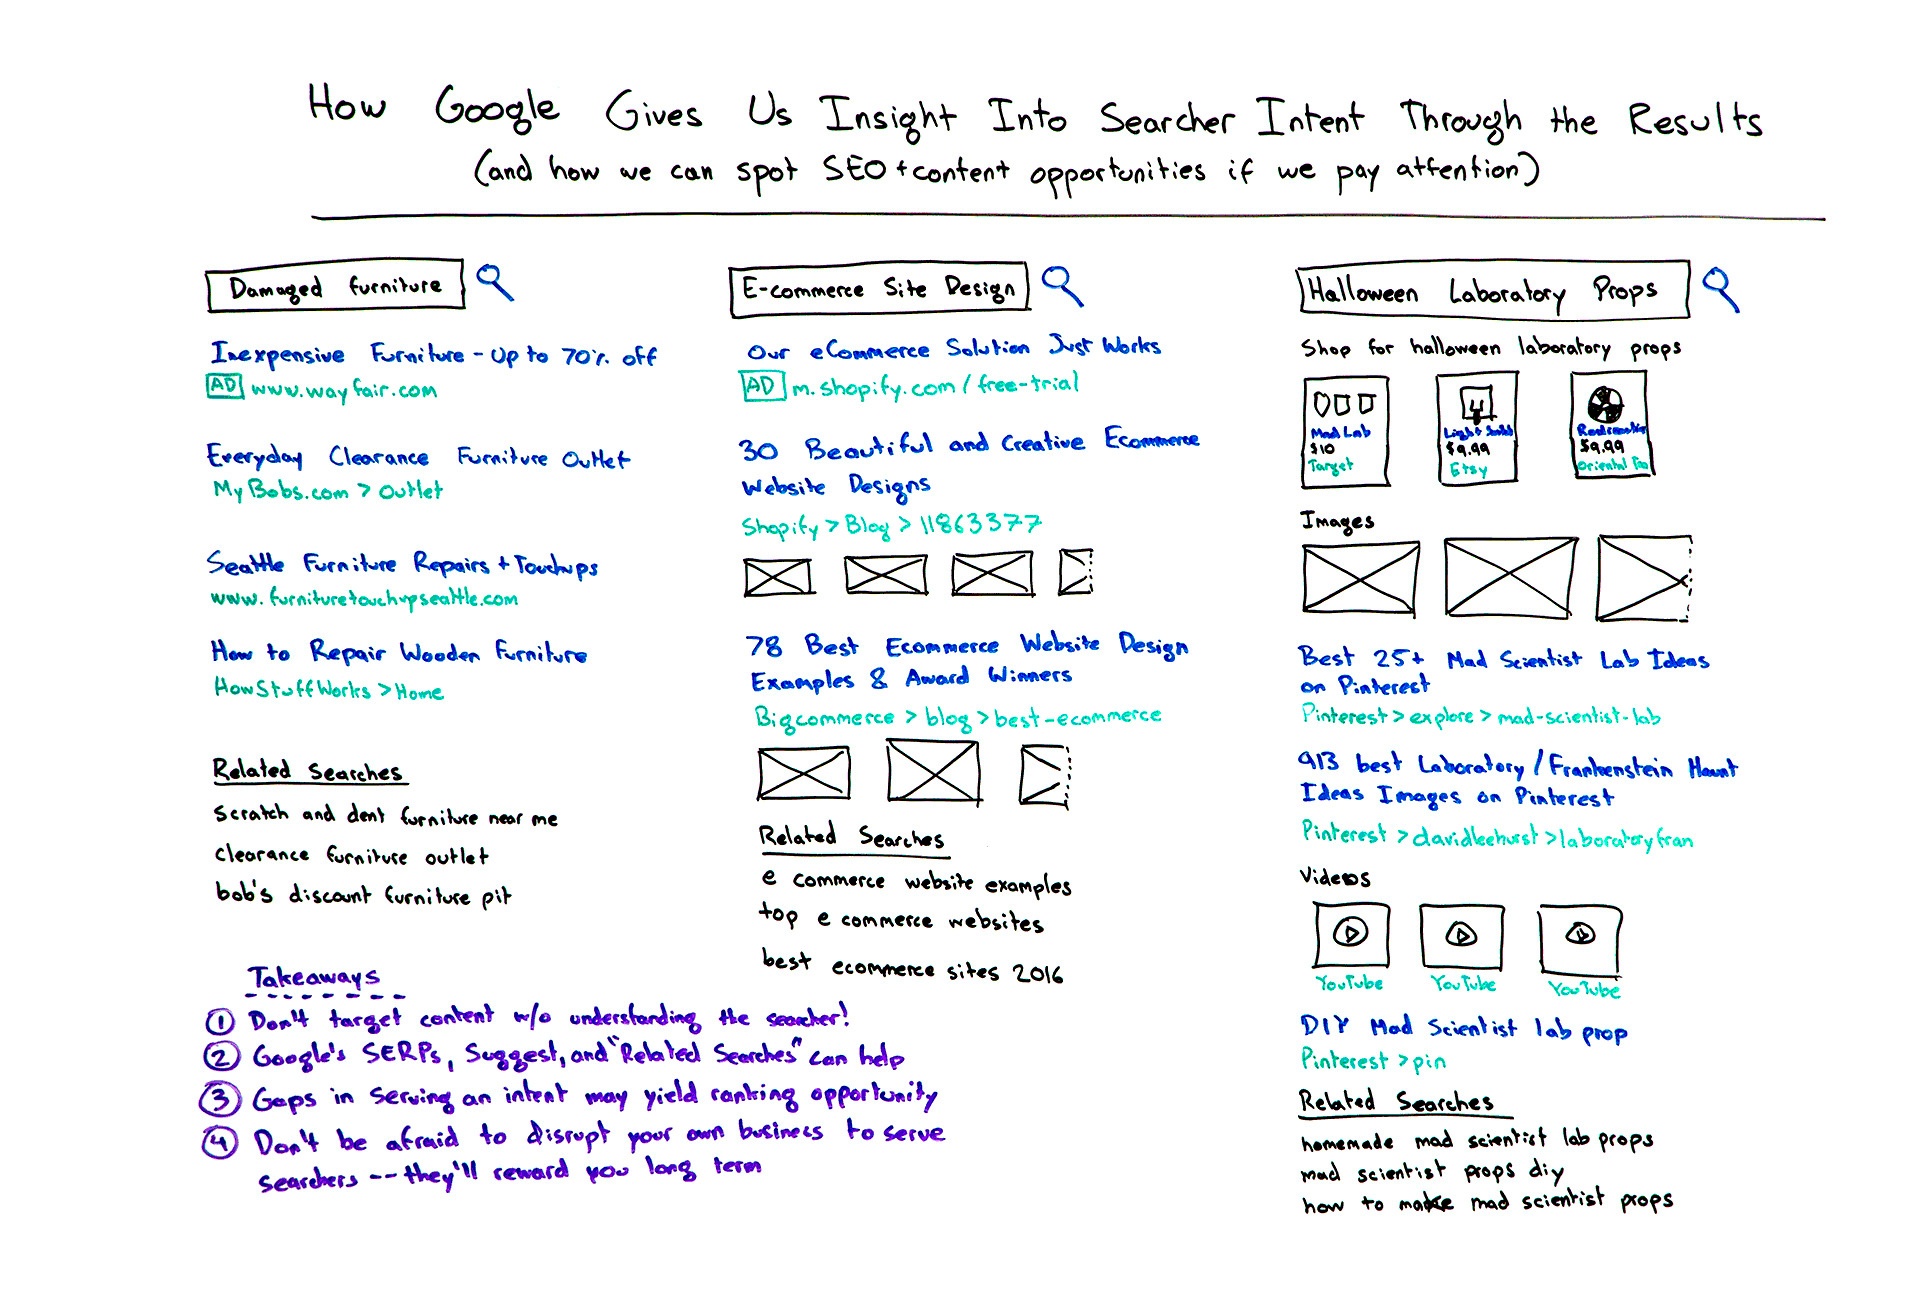 How Google Gives Us Insight Into Searcher Intent Through the Results
(and how we can spot SEO + content opportunities if we pay attention)
Damaged Furniture
Inexpensive Furniture - Up to 70% off
AD www.wayfair.com
Everyday Clearance Furniture Outlet
MyBobs.com > Outlet
Seattle Furniture Repairs + Touchups
www.furnituretouchupseattle.com
How to Repair Wooden Furniture
HowStuffWorks > Home
Related Searches
scratch and dent furniture near me
clearance furniture outlet
bob's discount furniture pit
E-commerce Site Design
Our eCommerce Solution Just Works
AD m.shopify.com/free-trial
30 Beautiful and Creative Ecommerce
Website Designs
Shopify > Blog > 11863377
78 Best Ecommerce Website Design
Examples & Award Winners
Bigcommerce > blog > best-ecommerce
Related Searches
e commerce website examples
top e commerce websites
best ecommerce sites 2016
Halloween Laboratory Props
Shop for halloween laboratory props
Mad Lab
$10
Target
Light Switch
$9.99
Etsy
$9.99
Oriental
Images
Best 25+ Mad Scientist Lab Ideas
on Pinterest
Pinterest > explore > mad-scientist-lab
913 best Laboratory/Frankenstein Haunt
Ideas Images on Pinterest
Pinterest > davidleehurst > laboratoryfran
Videos
YouTube
YouTube
YouTube
DIY Mad Scientist lab prop
Pinterest > pin
Related Searches
homemade mad scientist lab props
mad scientist props diy
how to make mad scientist props
Takeaways
1 Don't target content w/o understanding the searcher!
2 Google's SERPs, Suggest, and "Related Searches" can help
3 Gaps in serving an intent may yield ranking opportunity
4 Don't be afraid to disrupt your own business to serve
searchers -- they'll reward you long term